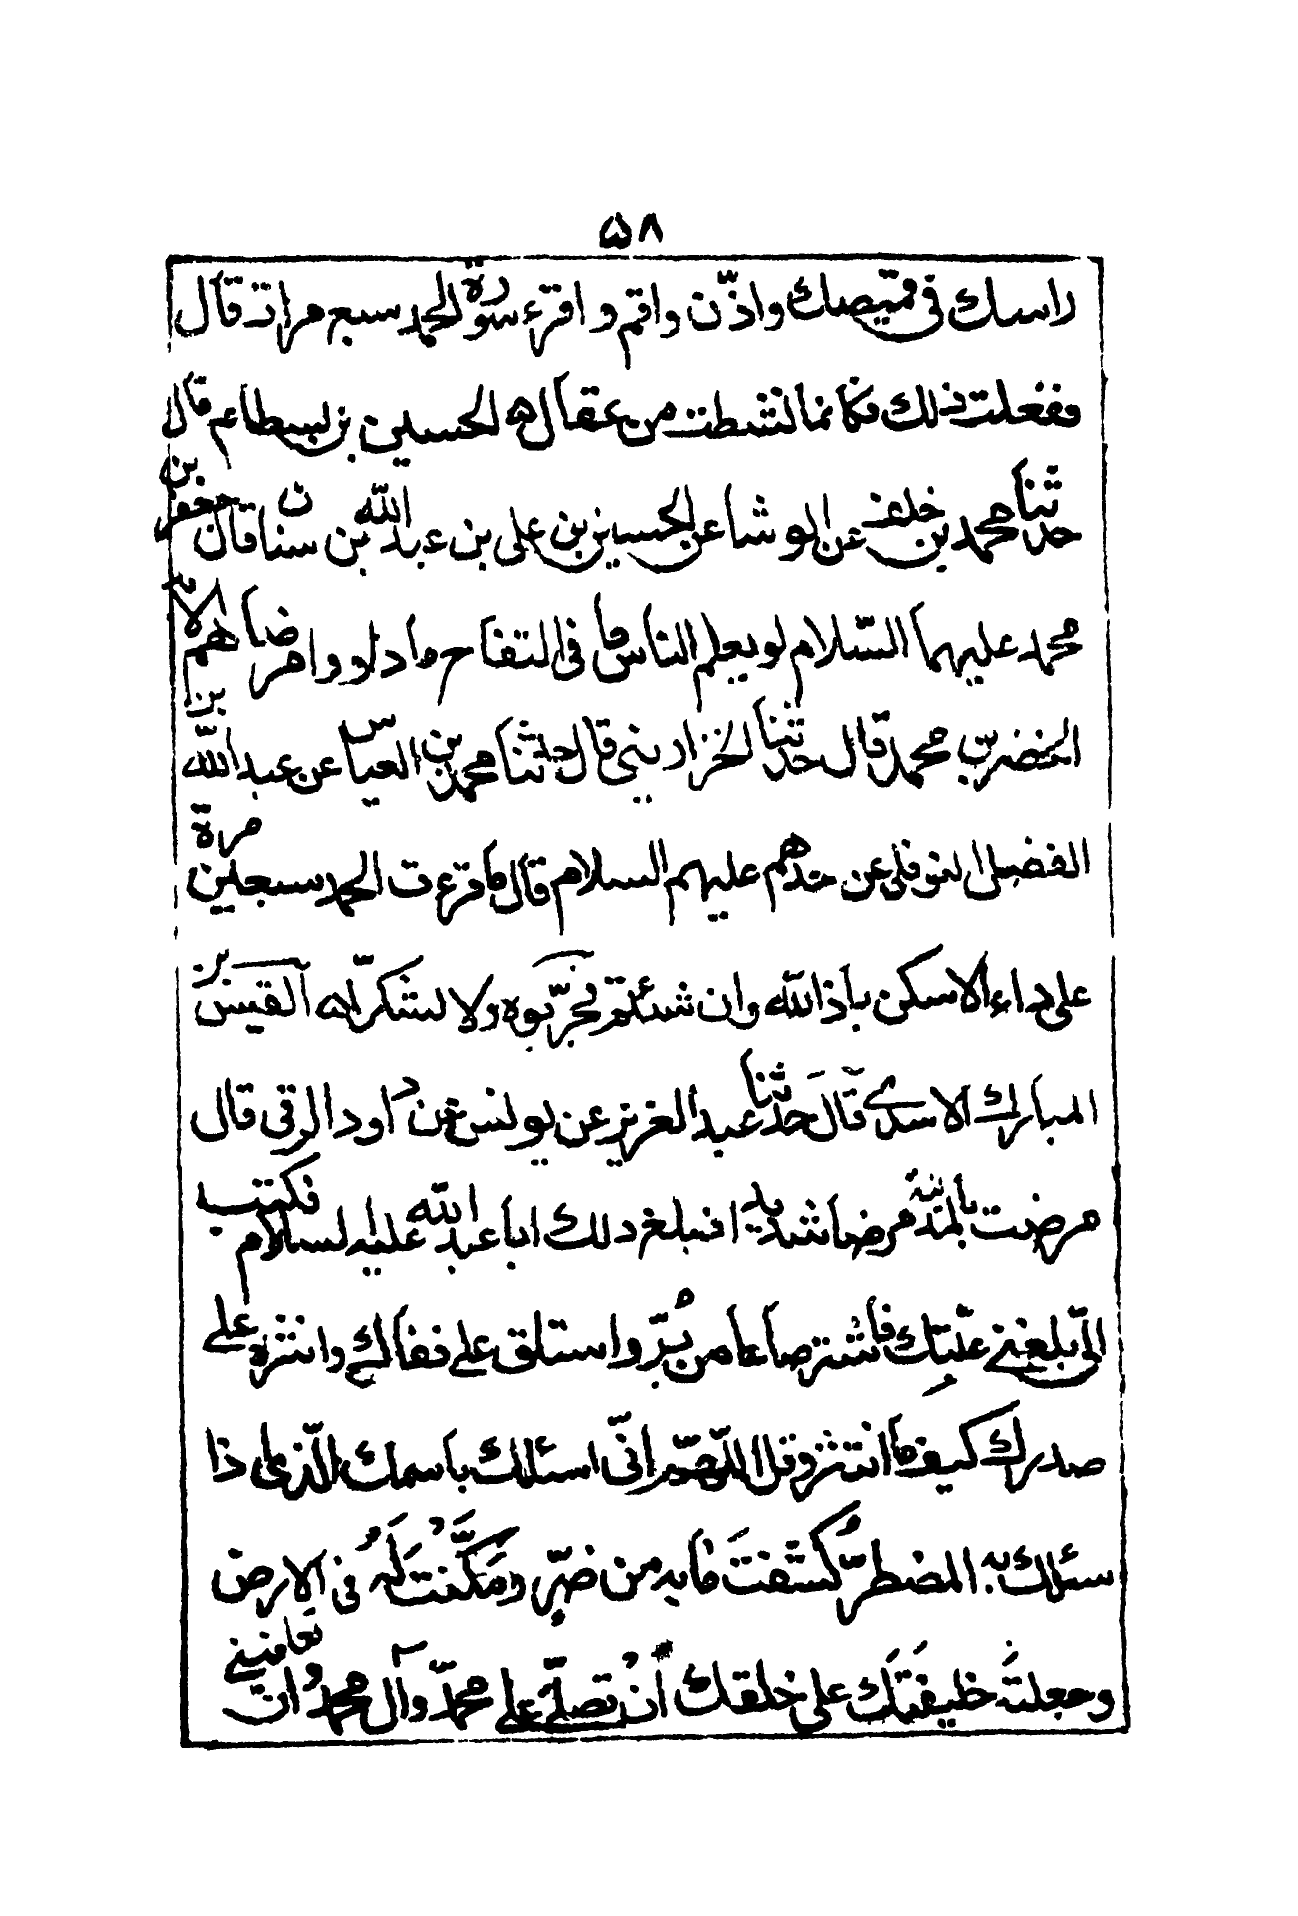 ۵۸
راسك في قميصك واذّن واقم واقرء سورة الحمد سبع مرات قال
ففعلت ذلك فكانما نشطت من عقال الحسين بن بسطام قال
حدثنا محمد بن خلف عن الوشا عن الحسين بن على بن عبد الله بن سنان قال جعفر بن
محمد عليهما السّلام لو يعلم الناس ما في التفاح ما داووا مرضاهم الّا به
الخضر بن محمد قال حدثنا الخزاريني قال حدثنا محمد بن العباس عن عبد الله بن
الفضل النوفلي عن حدهم عليهم السلام قال ما قرءت الحمد سبعين مرة
على داء الا سكن باذن الله وان شئتم فجرّبوه ولا تشكّوا الفيض بن
المبارك الاسدي قال حدثنا عبد العزيز عن يونس عن داود الرقى قال
مرضت بالمدينة مرضا شديدا فبلغ ذلك ابا عبد الله عليه لسلام فكتب
الىّ بلغني علّتك فاشتر صاعا من بُرّ واستلق على قفاك وانثره على
صدرك كيف ما انتثر وقل اللّهمّ انّى اسئلك باسمك الّذى اذا
سئلك به المضطرّ كشفتَ ما به من ضرّ ومَكَّنتَ لَهُ في الارض
وجعلته خليفتَك على خلقك اَن تصلّى على محمّد وآل محمّد وان تعافيني